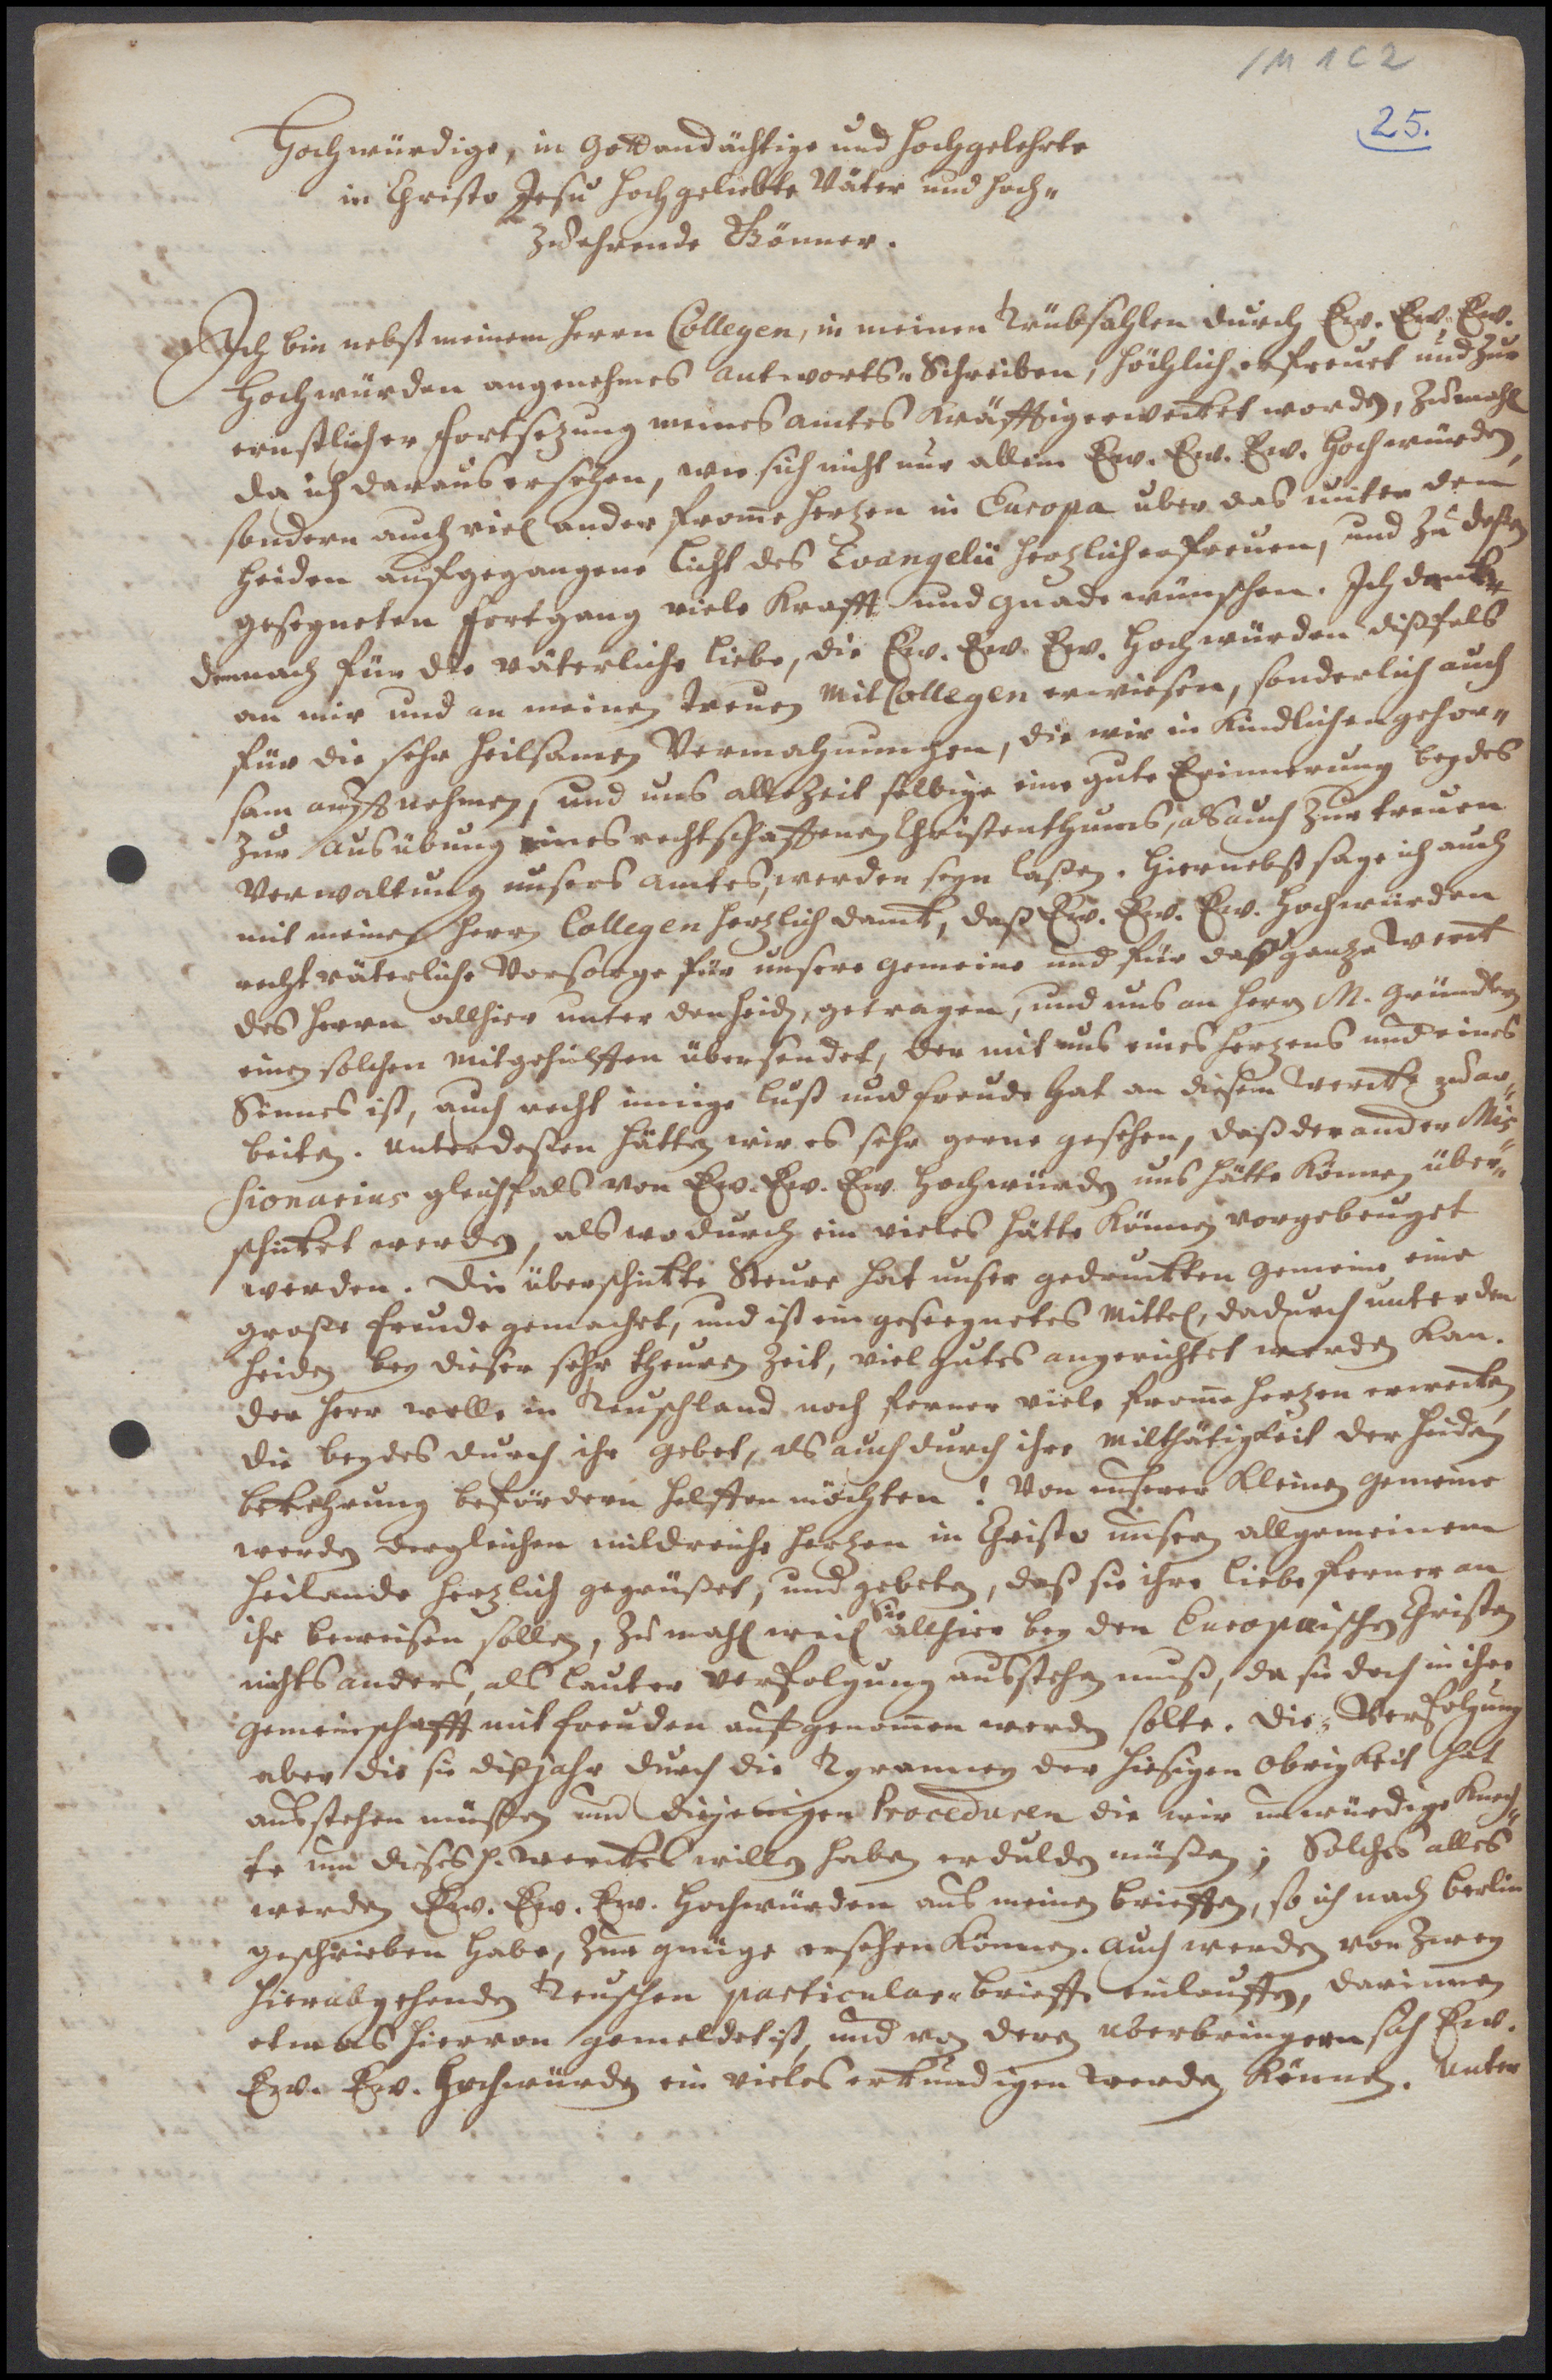 /M 1C2
25.
Hochwürdige, in Gott andächtige und Hochgelehrte
in Christo Jesu hochgeliebte Väter und hoch-
zuehrende Gönner.
Ich bin nebst meinem Herrn Collegen, in meinen Trübsahlen durch Ew. Ew. Ew.
Hochwürden angenehmes Antworts-Schreiben, höchlich erfreuet und zur
ernstlicher Fortsezung meines Amtes kräfftig erwecket worden, zumahl
da ich daraus ersehen, wie sich nicht nur allein Ew. Ew. Ew. Hochwürden,
sondern auch viel ander fromme Hertzen in Europa uber das unter den
Heiden aufgegangene Licht des Evangelii hertzlich erfreuen, und zu deßen
gesegneten Fortgang viele Krafft und Gnade wünschen. Ich dancke
demnach für die väterliche Liebe, die Ew. Ew. Ew. Hochwürden dißfals
an mir und an meinen treuen Mit Collegen erwiesen, sonderlich auch
für die sehr heilsamen Vermahnungen, die wir in kindlichen gehor-
sam auffnehmen, und uns allezeit selbige eine gute Erinnerung beydes
zur Ausübung eines rechtschaffenen Christenthums, als auch zur treuen
Verwaltung unsers Amtes, werden seyn laßen. Hiernebst sage ich auch
mit meinen Herrn Collegen hertzlich danck, daß Ew. Ew. Ew. Hochwürden
recht väterliche Vorsorge für unsere Gemeine und für daß gantze Werck
des Herrn allhier unter den Heiden, getragen, und uns an Herrn M. Gründlern
einen solchen Mitgehülffen übersendet, der mit uns eines Hertzens und eines
Sinnes ist, auch recht innige Lust und Freude hat an diesem Wercke zu ar-
beiten. Unterdeßen hätten wir es sehr gerne gesehen, daß der ander Mis-
sionarius gleichfals von Ew. Ew. Ew. Hochwürden uns hätte können über-
schicket werden, als wodurch ein vieles hätte können vorgebeuget
werden. Die überschickte Steure hat unser gedruckten Gemeine eine
große Freude gemachet, und ist ein geseegnetes Mittel, dadurch unter den
Heiden bey dieser sehr theuren Zeit, viel gutes angerichtet werden kan.
Der Herr wolle in Teuschland noch ferner viele fromme Hertzen erwecken,
die beydes durch ihr Gebet, als auch durch ihre Milthätigkeit der Heiden
bekehrung befördern helffen möchten! Von unserer kleinen Gemeine
werden dergleichen mildreiche Hertzen in Christo unserm allgemeinem
Heilande hertzlich gegrüßet, und gebeten, daß sie ihre Liebe ferner an
ihr beweisen sollen, zumahl weil sie allhier bey den Europaischen Christen
nichts anders, als lauter Verfolgung ausstehen muß, da sie doch in ihre
Gemeinschafft mit Freuden aufgenommen werden solte. Die Verfolgung
aber die sie diß Jahr durch die Tyranney der hiesigen Obrigkeit hat
ausstehen müßen und diejenigen Proceduren die wir unwürdige Knech-
te um dieses H. Werckes willen haben erdulden müßen; Solches alles
werden Ew. Ew. Ew. Hochwürden aus meinen brieffen, so ich nach Berlin
geschrieben habe, zur gnüge ersehen können. Auch werden von zwey
hierabgehenden Teuschen particular-brieffe einlauffen, darinnen
etwas hiervon gemeldet ist, und von deren uberbringern sich Ew.
Ew. Ew. Hochwürden ein vieles erkundigen werden können. Unter